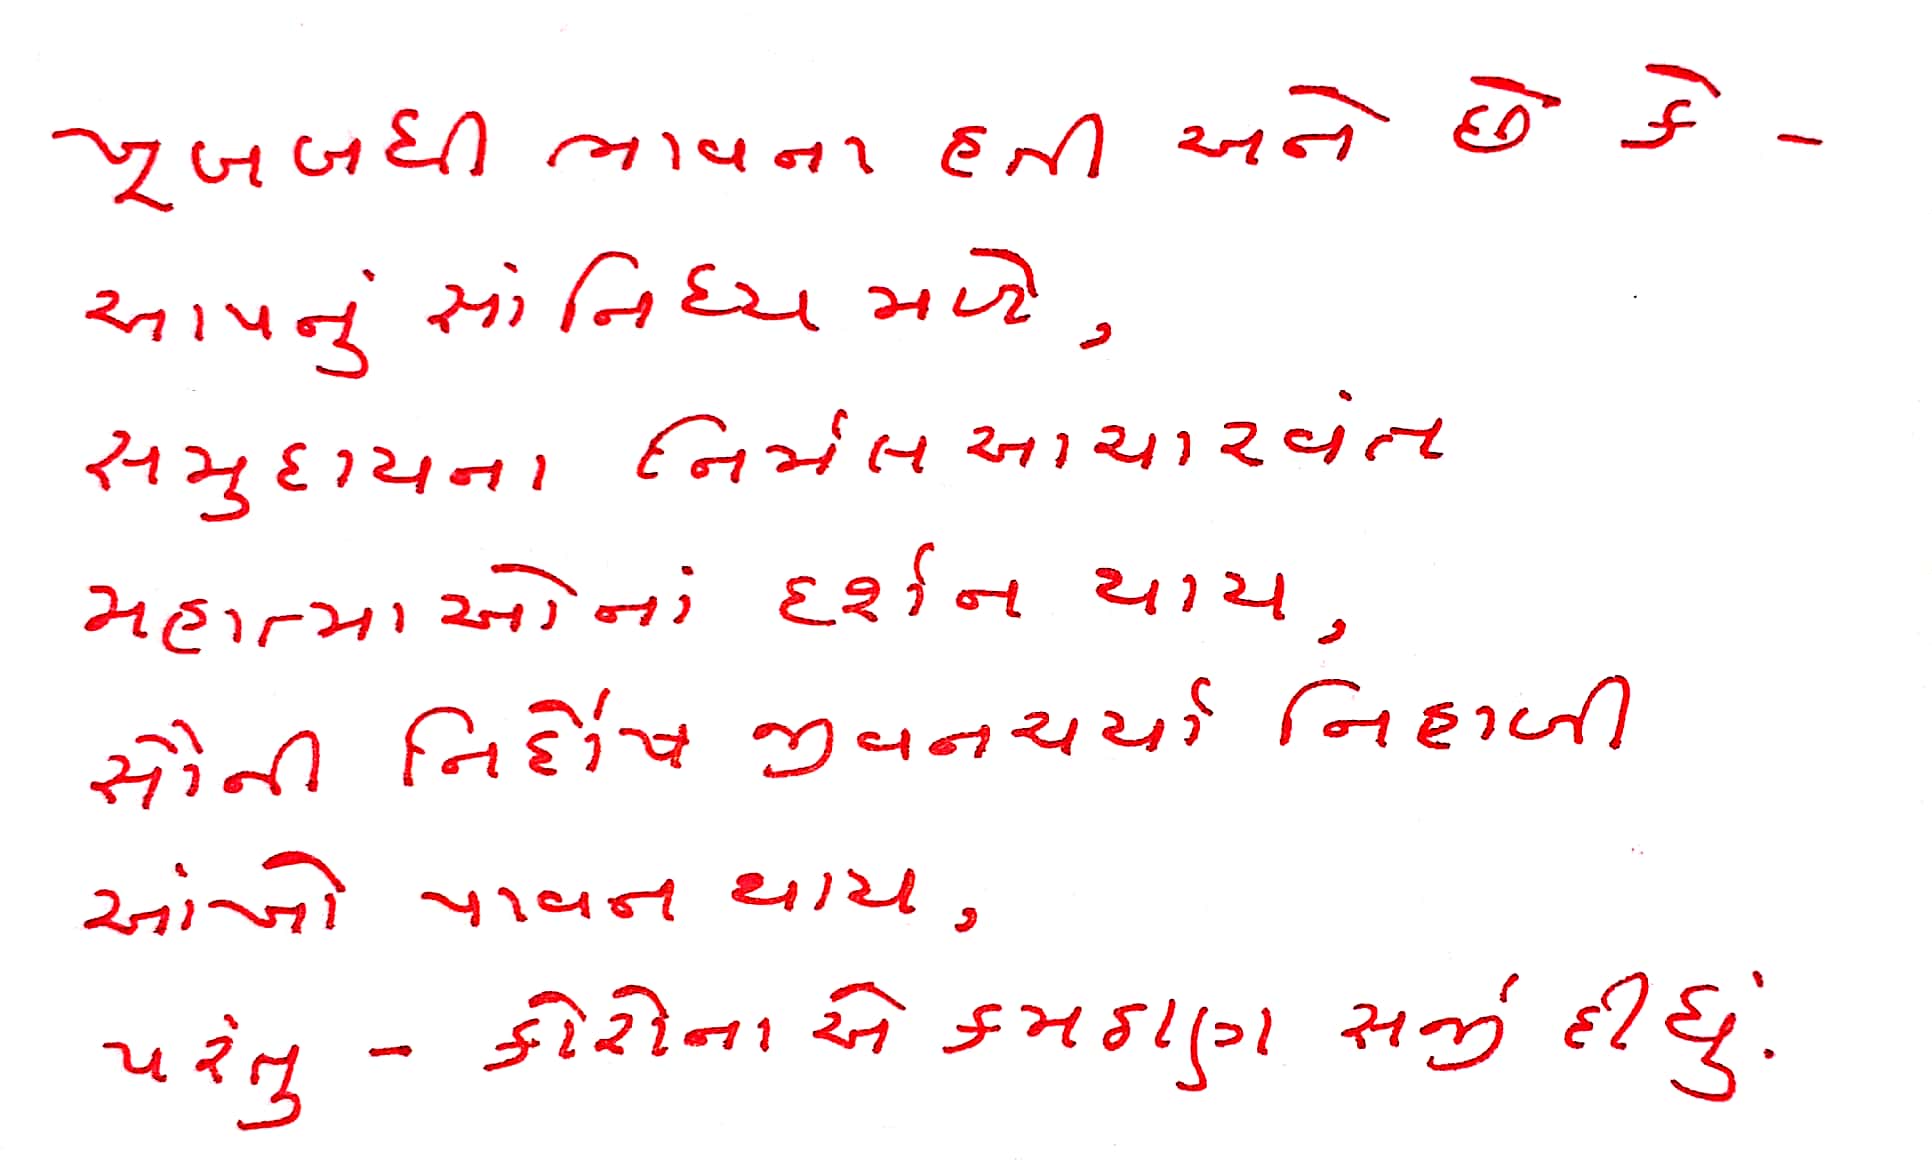 ખૂબબધી ભાવના હતી અને છે કે -
આપનું સાંનિધ્ય મળે,
સમુદાયના નિર્મલ આચારવંત
મહાત્માઓનાં દર્શન થાય,
સૌની નિર્દોષ જીવનચર્યા નિહાળી
આંખો પાવન થાય,
પરંતુ - કોરોનાએ કમઠાણ સર્જી દીધું.